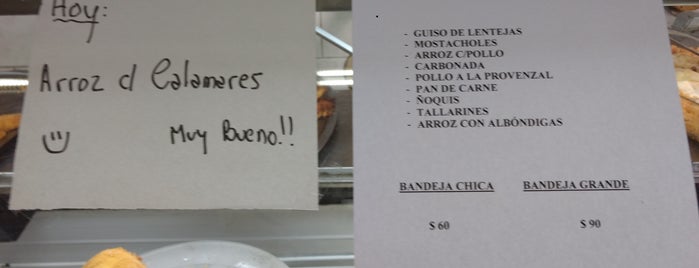 Hoy:
Arroz c/ Calamares
Muy Bueno!!
- GUISO DE LENTEJAS
- MOSTACHOLES
- ARROZ C/POLLO
- CARBONADA
- POLLO A LA PROVENZAL
- PAN DE CARNE
- ÑOQUIS
- TALLARINES
- ARROZ CON ALBÓNDIGAS
BANDEJA CHICA BANDEJA GRANDE
$ 60 $ 90